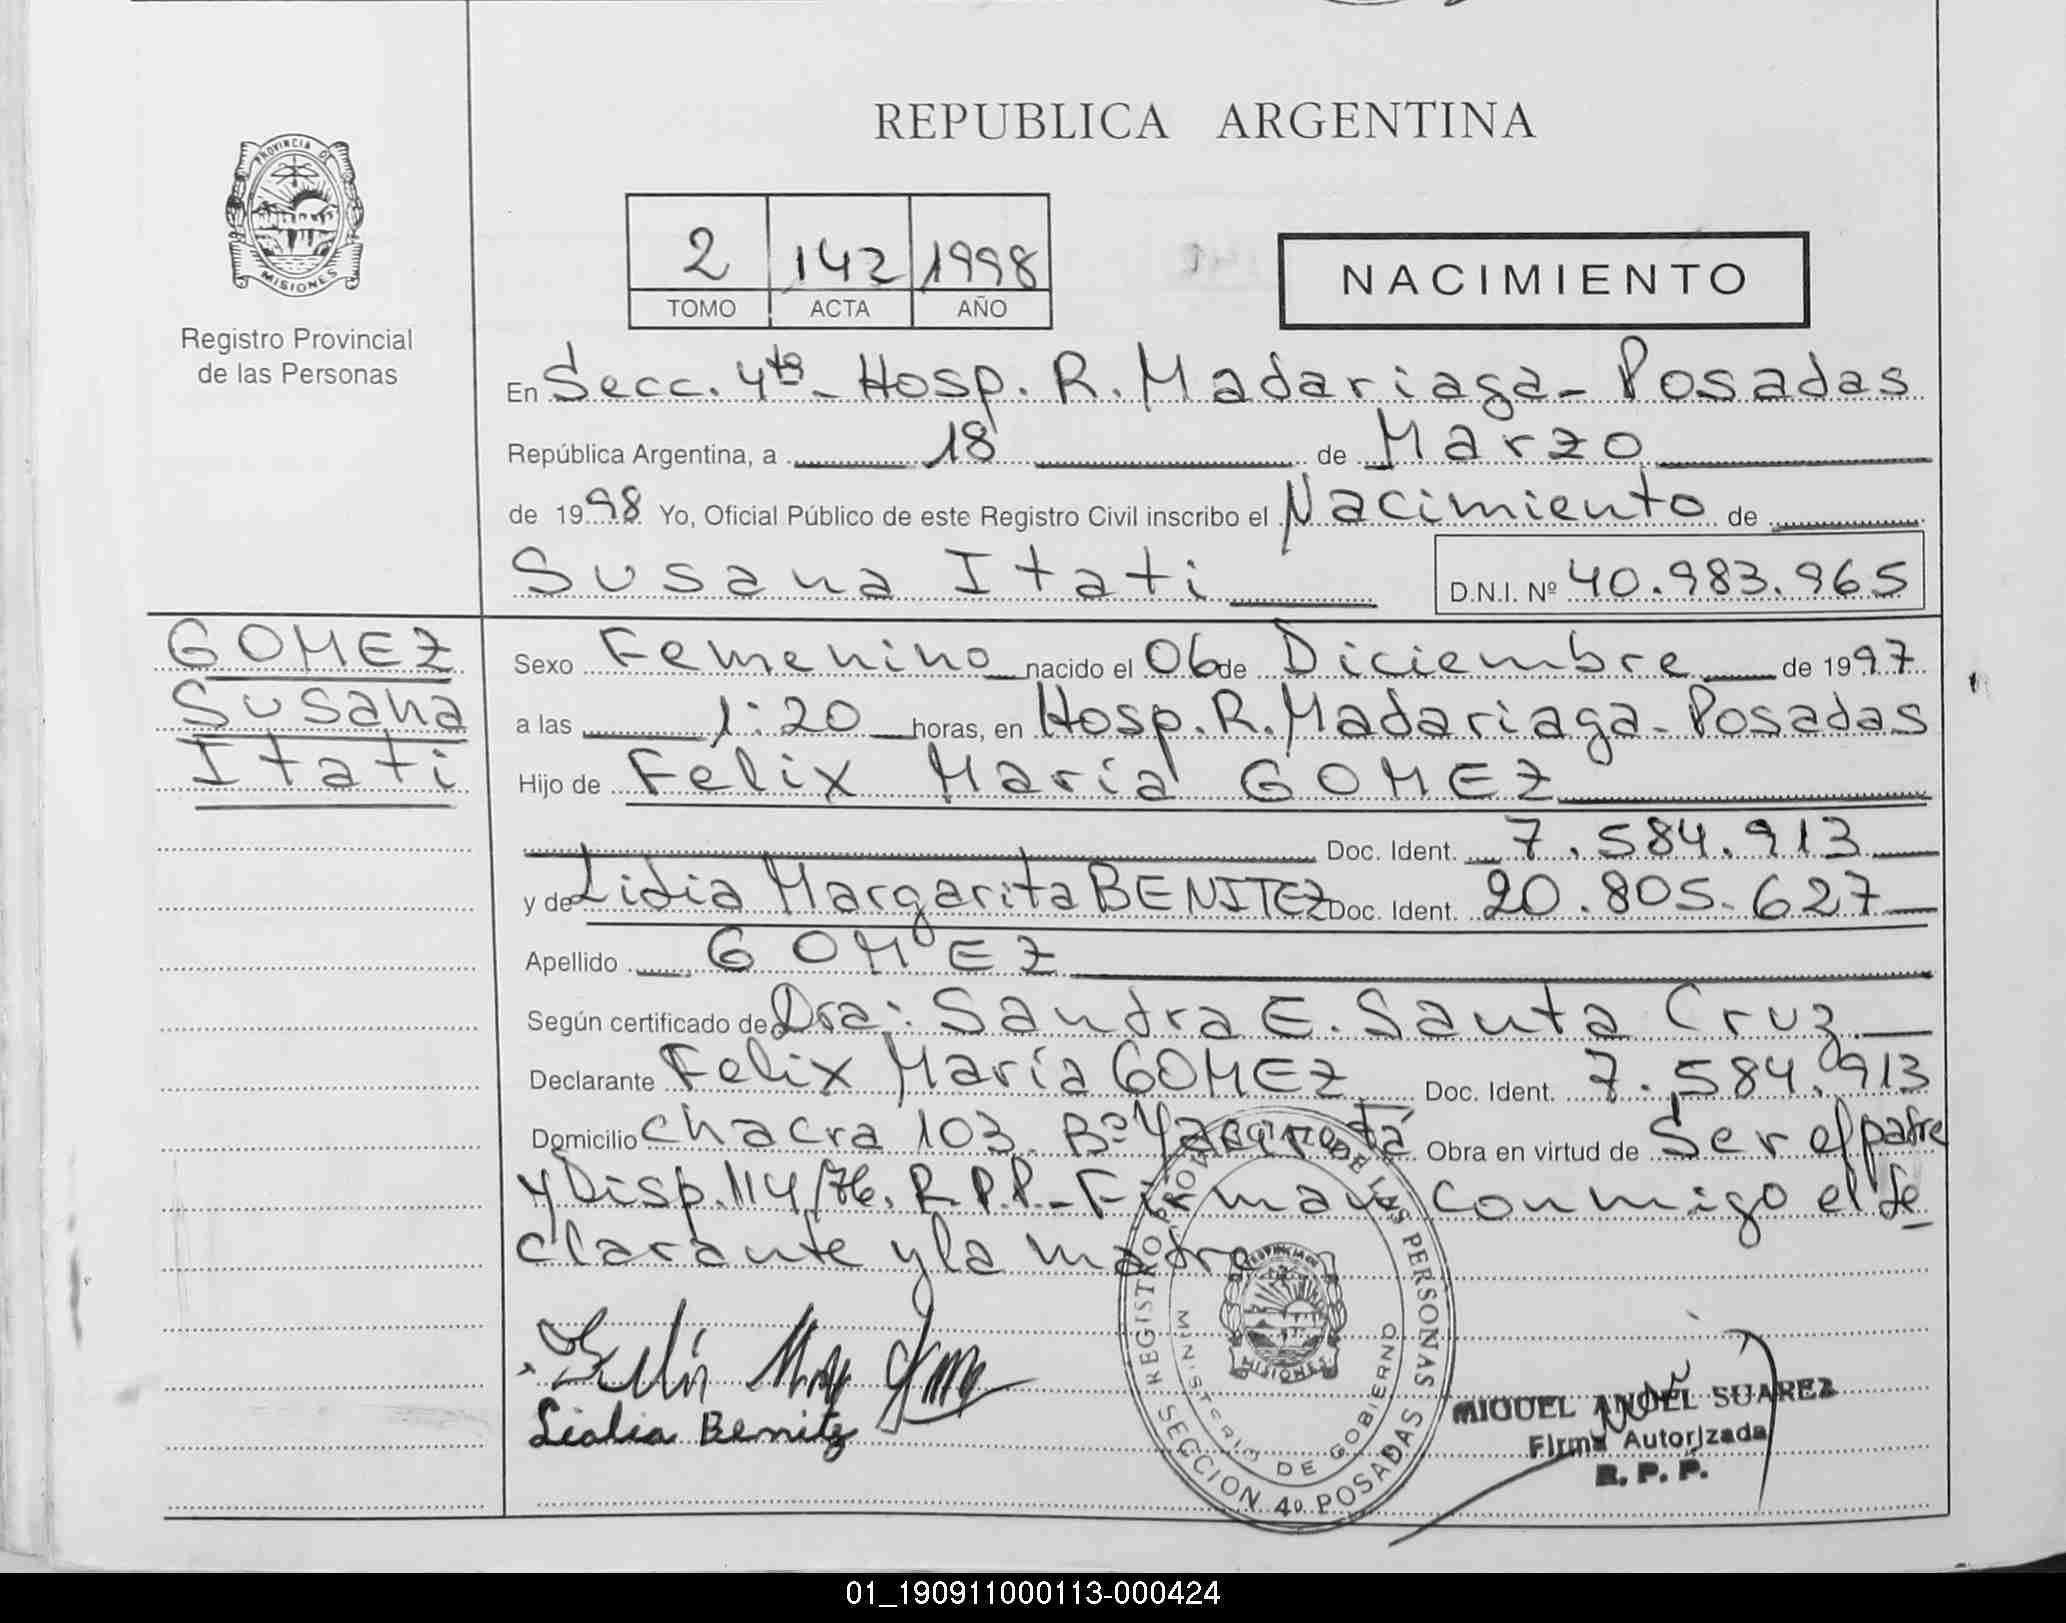 REPUBLICA ARGENTINA
PROVINCIA DE
MISIONES
Registro Provincial
de las Personas
2 142 1998
TOMO ACTA AÑO
NACIMIENTO
En Secc. 4ta - Hosp. R. Madariaga - Posadas
República Argentina, a 18 de Marzo
de 1998 Yo, Oficial Público de este Registro Civil inscribo el Nacimiento de
Susana Itati D.N.I. Nº 40.983.965
GOMEZ
Susana
Itati
Sexo Femenino nacido el 06 de Diciembre de 1997
a las 1:20 horas, en Hosp. R. Madariaga - Posadas
Hijo de Felix María GOMEZ
Doc. Ident. 7.584.913
y de Lidia Margarita BENITEZ Doc. Ident. 20.805.627
Apellido GOMEZ
Según certificado de Dra: Sandra E. Santa Cruz
Declarante Felix María GOMEZ Doc. Ident. 7.584.913
Domicilio Chacra 103. Bº Yacyretá Obra en virtud de Ser el padre
y Disp. 114/76. R.P.P. - Firman conmigo el de
clarante y la madre
Lidia Benitz
REGISTRO PROVINCIAL DE LAS PERSONAS
SECCION 4º POSADAS
MINISTERIO DE GOBIERNO
PROVINCIA DE
MISIONES
MIGUEL ANGEL SUAREZ
Firma Autorizada
R. P. P.
01_190911000113-000424